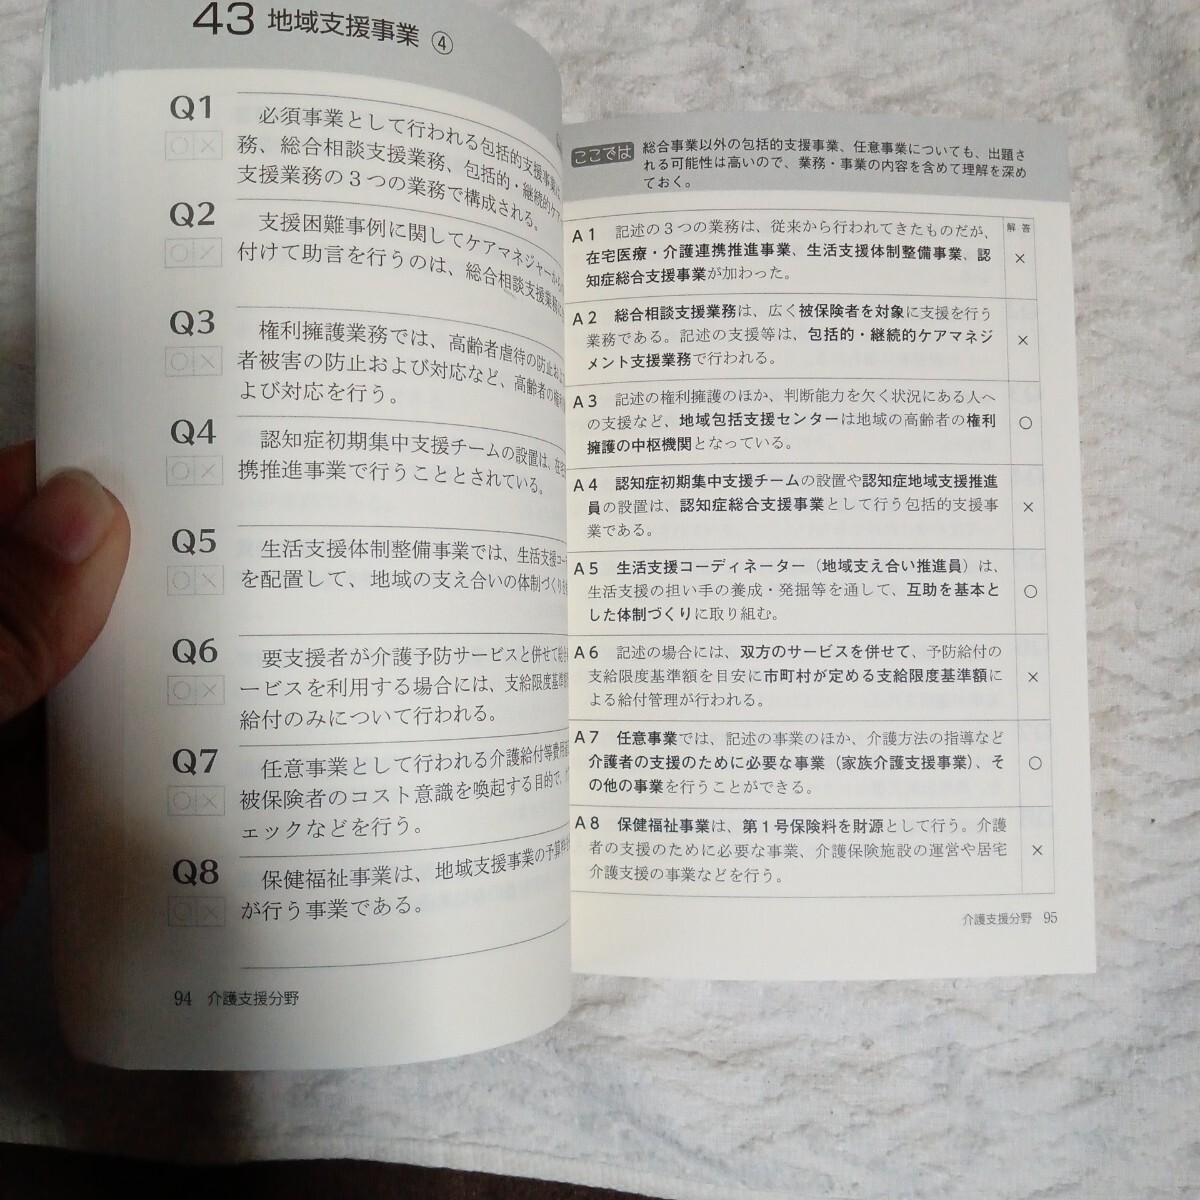 43 地域支援事業 ④
Q1 必須事業として行われる包括的支援事業
務、総合相談支援業務、包括的・継続的ケア
支援業務の3つの業務で構成される。
○×
Q2 支援困難事例に関してケアマネジャーから
付けて助言を行うのは、総合相談支援業務
○×
Q3 権利擁護業務では、高齢者虐待の防止およ
者被害の防止および対応など、高齢者の権利
よび対応を行う。
○×
Q4 認知症初期集中支援チームの設置は、在宅
携推進事業で行うこととされている。
○×
Q5 生活支援体制整備事業では、生活支援コー
を配置して、地域の支え合いの体制づくり
○×
Q6 要支援者が介護予防サービスと併せて
ービスを利用する場合には、支給限度基準
給付のみについて行われる。
○×
Q7 任意事業として行われる介護給付等費用
被保険者のコスト意識を喚起する目的で、
ェックなどを行う。
○×
Q8 保健福祉事業は、地域支援事業の予算
が行う事業である。
○×
94 介護支援分野
ここでは 総合事業以外の包括的支援事業、任意事業についても、出題さ
れる可能性は高いので、業務・事業の内容を含めて理解を深め
ておく。
解答
A1 記述の3つの業務は、従来から行われてきたものだが、
在宅医療・介護連携推進事業、生活支援体制整備事業、認
知症総合支援事業が加わった。
×
A2 総合相談支援業務は、広く被保険者を対象に支援を行う
業務である。記述の支援等は、包括的・継続的ケアマネジ
メント支援業務で行われる。
×
A3 記述の権利擁護のほか、判断能力を欠く状況にある人へ
の支援など、地域包括支援センターは地域の高齢者の権利
擁護の中枢機関となっている。
○
A4 認知症初期集中支援チームの設置や認知症地域支援推進
員の設置は、認知症総合支援事業として行う包括的支援事
業である。
×
A5 生活支援コーディネーター（地域支え合い推進員）は、
生活支援の担い手の養成・発掘等を通して、互助を基本と
した体制づくりに取り組む。
○
A6 記述の場合には、双方のサービスを併せて、予防給付の
支給限度基準額を目安に市町村が定める支給限度基準額に
よる給付管理が行われる。
×
A7 任意事業では、記述の事業のほか、介護方法の指導など
介護者の支援のために必要な事業（家族介護支援事業）、そ
の他の事業を行うことができる。
○
A8 保健福祉事業は、第1号保険料を財源として行う。介護
者の支援のために必要な事業、介護保険施設の運営や居宅
介護支援の事業などを行う。
×
介護支援分野 95